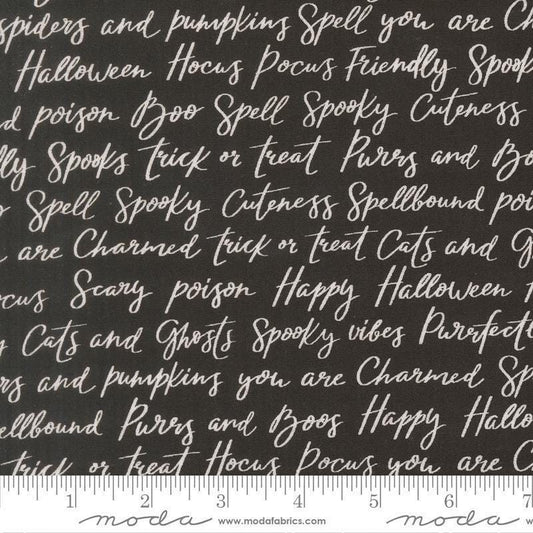 spiders and pumpkins Spell you are Ch
Halloween Hocus Pocus Friendly Spook
d poison Boo Spell Spooky Cuteness
lly Spooks trick or treat Purrs and Bo
o Spell Spooky Cuteness Spellbound poi
are Charmed trick or treat Cats and Gh
ocus Scary poison Happy Halloween
y Cats and Ghosts Spooky vibes Purrfect
rs and pumpkins you are Charmed Sp
ellbound Purrs and Boos Happy Hallo
trick or treat Hocus Pocus you are C
1 2 3 4 5 6 7
moda www.modafabrics.com moda